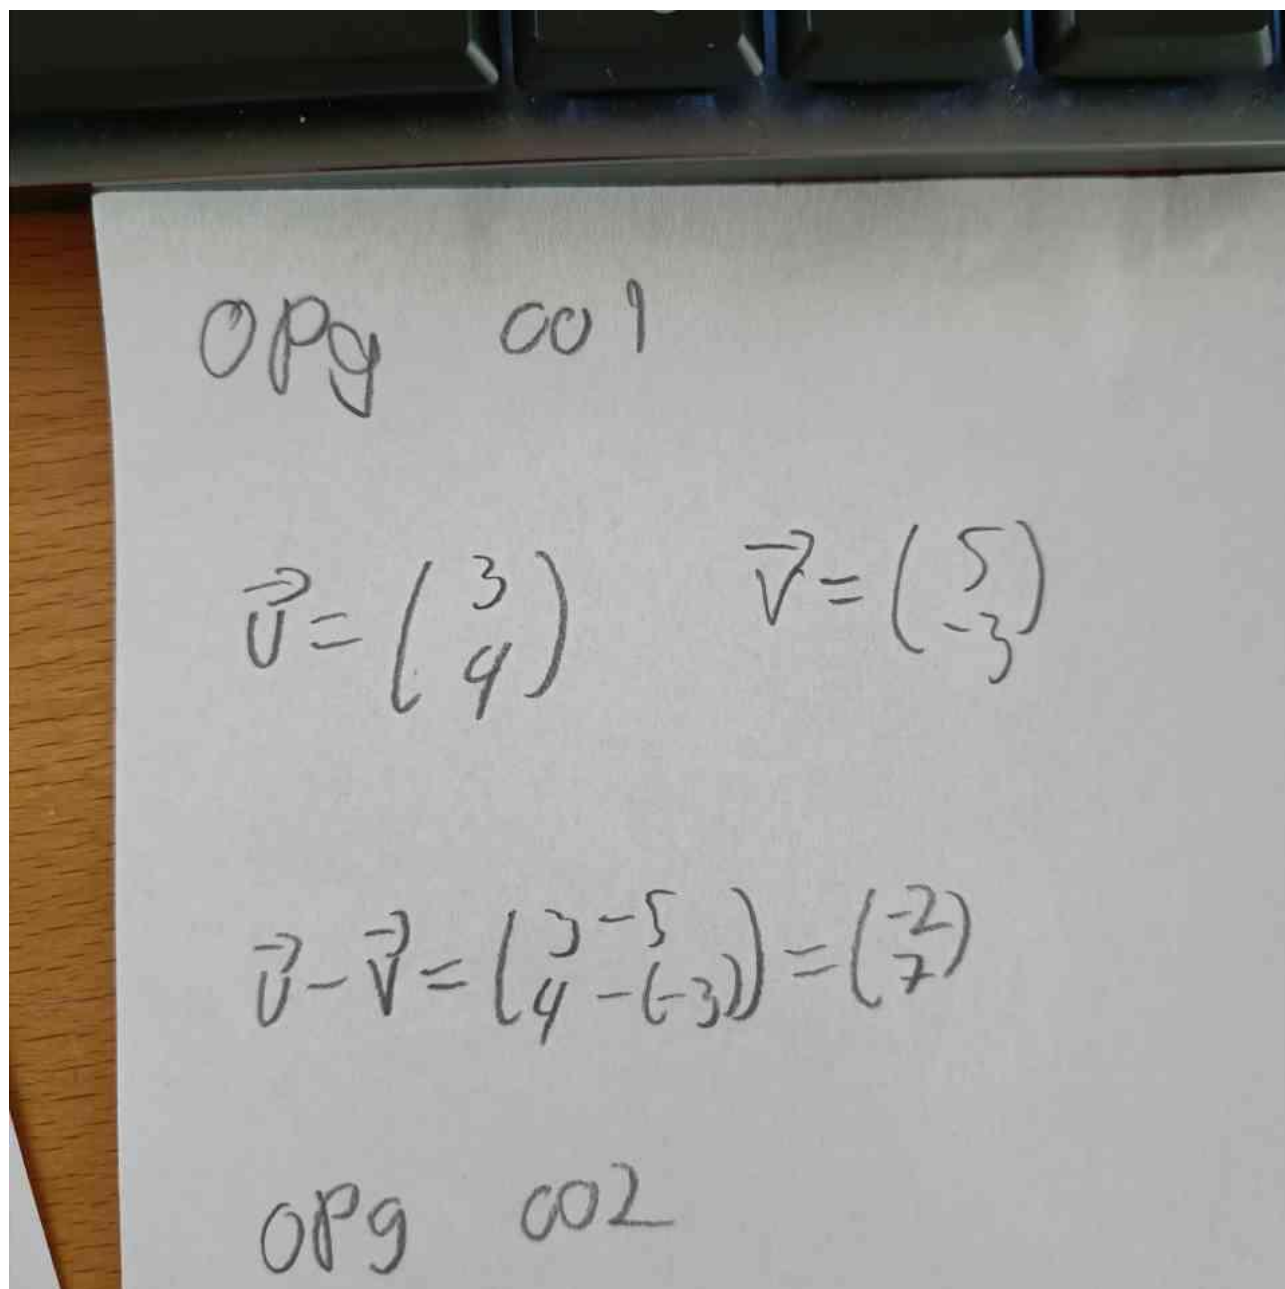 OPg 001
u⃗ = (3 4) v⃗ = (5 -3)
u⃗ - v⃗ = (3-5 4-(-3)) = (-2 7)
OPg 002